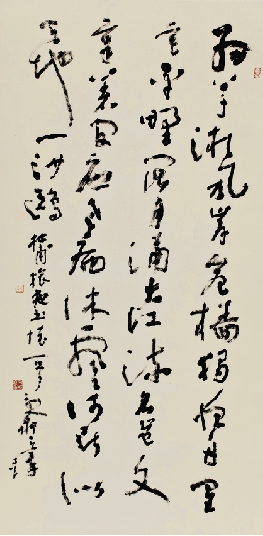 細草微風岸危檣獨夜舟星
垂平野闊月涌大江流名豈文
章著官應老病休飄飄何所似
天地一沙鷗
杜甫旅夜書懷